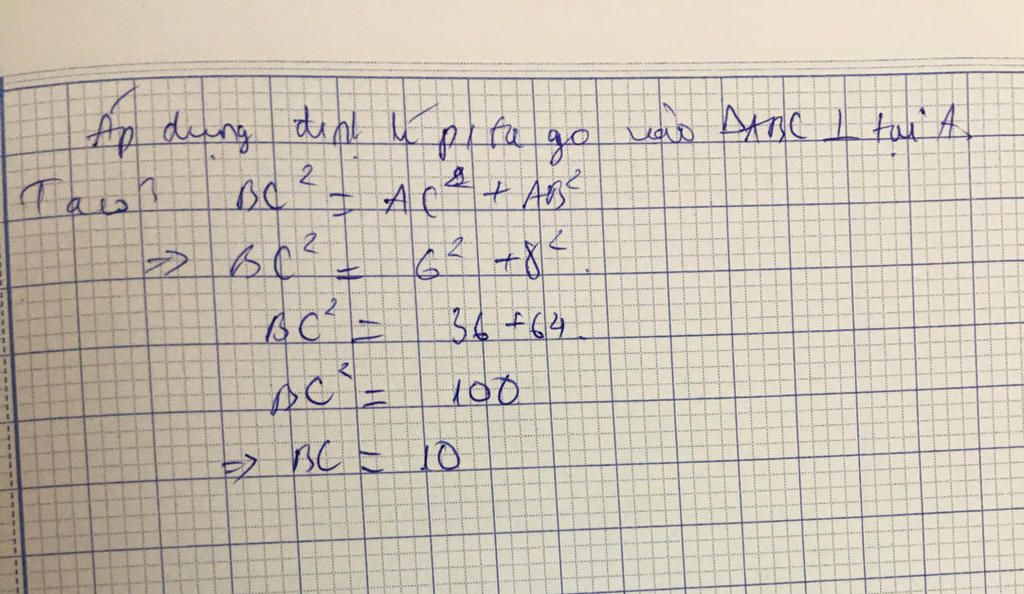 Áp dụng định lí pi ta go vào ΔABC ⊥ tại A
Ta có: BC² = AC² + AB²
⇒ BC² = 6² + 8².
BC² = 36 + 64.
BC² = 100
⇒ BC = 10